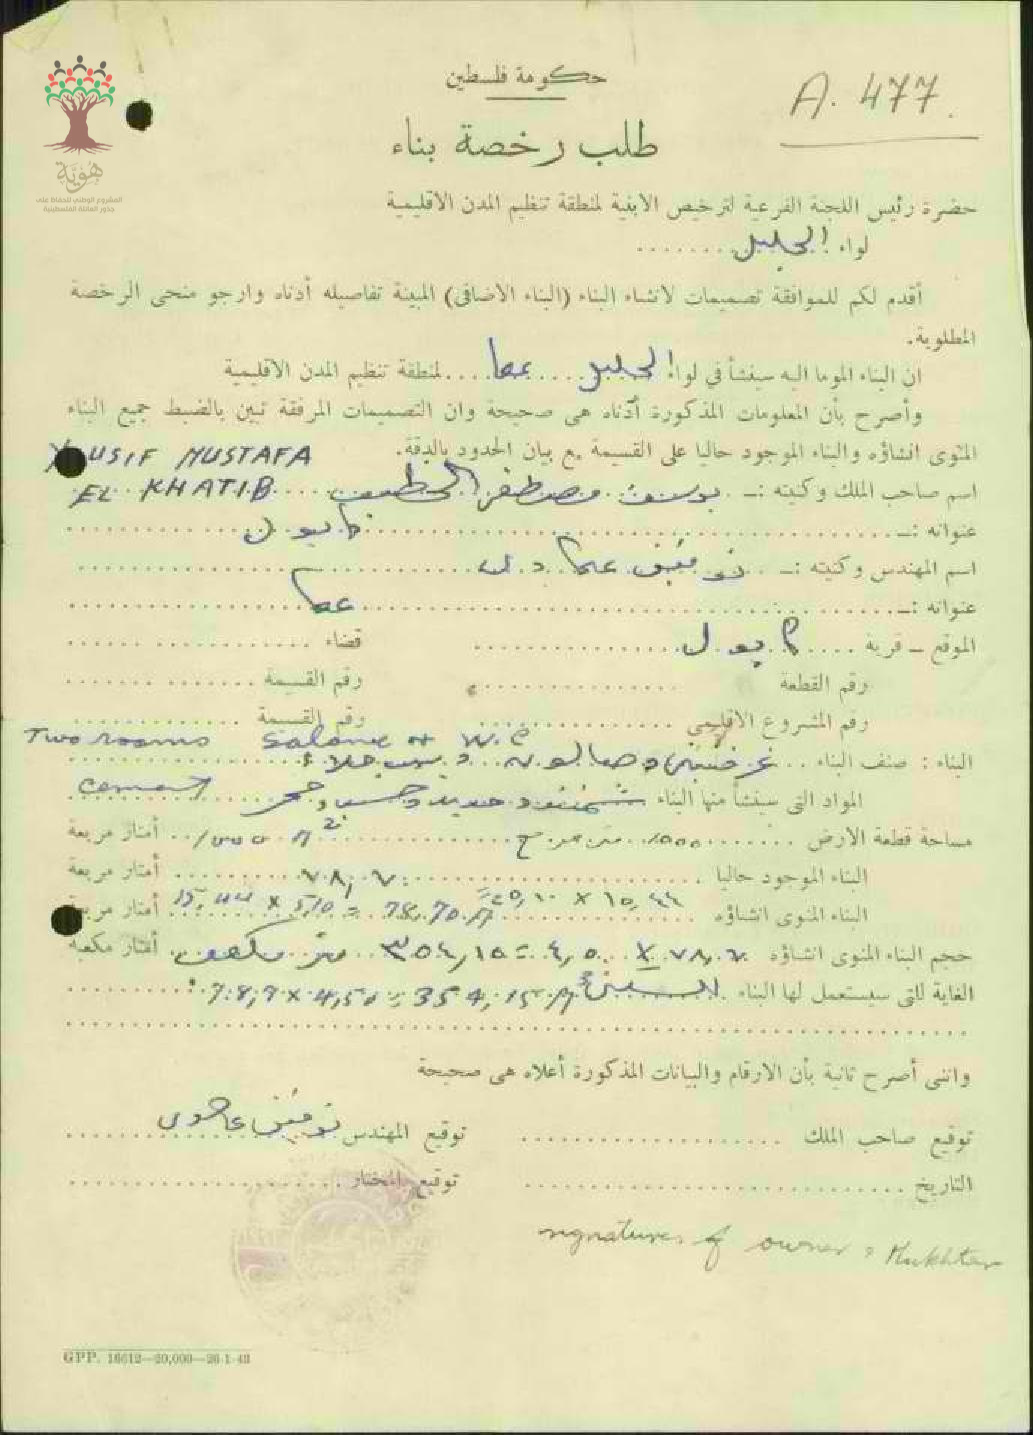 A. 477
هُويّة
المشروع الوطني للحفاظ على
جذور العائلة الفلسطينية
حكومة فلسطين
طلب رخصة بناء
حضرة رئيس اللجنة الفرعية لترخيص الابنية لمنطقة تنظيم المدن الاقليمية
لواء الجليل
أقدم لكم للموافقة تصميمات لانشاء البناء (البناء الاضافي) المبينة تفاصيله أدناه وارجو منحى الرخصة
المطلوبة.
ان البناء الموما اليه سينشأ في لواء الجليل .... عكا .... لمنطقة تنظيم المدن الاقليمية
وأصرح بأن المعلومات المذكورة أدناه هى صحيحة وان التصميمات المرفقة تبين بالضبط جميع البناء
المنوى انشاؤه والبناء الموجود حاليا على القسيمة مع بيان الحدود بالدقة.
YOUSIF MUSTAFA
EL KHATIB
اسم صاحب الملك وكنيته :— يوسف مصطفى الخطيب
عنوانه :— كابول
اسم المهندس وكنيته :— توفيق
عنوانه :— عكا
الموقع — قرية كابول قضاء
رقم القطعة رقم القسيمة
رقم المشروع الاقليمي رقم القسيمة
Two rooms Salone + W.C
البناء : صنف البناء غرفتين وصالون وبيت خلاء
المواد التى سينشأ منها البناء شمنتو وحديد وخشب وحجر cement
مساحة قطعة الارض ١٥٠٠ متر مربع 1500 M² أمتار مربعة
البناء الموجود حاليا ٧٨,٧٠ أمتار مربعة
البناء المنوى انشاؤه 78.70 M أمتار مربعة
حجم البناء المنوى انشاؤه ٧٨,٧٠ x ٤,٥٠ = ٣٥٤,١٥ متر مكعب أمتار مكعبة
الغاية التى سيستعمل لها البناء للسكن 78,7 x 4,50 = 354,15 M³
واننى أصرح ثانية بأن الارقام والبيانات المذكورة أعلاه هى صحيحة
توقيع صاحب الملك توقيع المهندس توفيق
التاريخ توقيع المختار
signatures of owner & Mukhtar
GPP. 16612—20,000—26-1-43